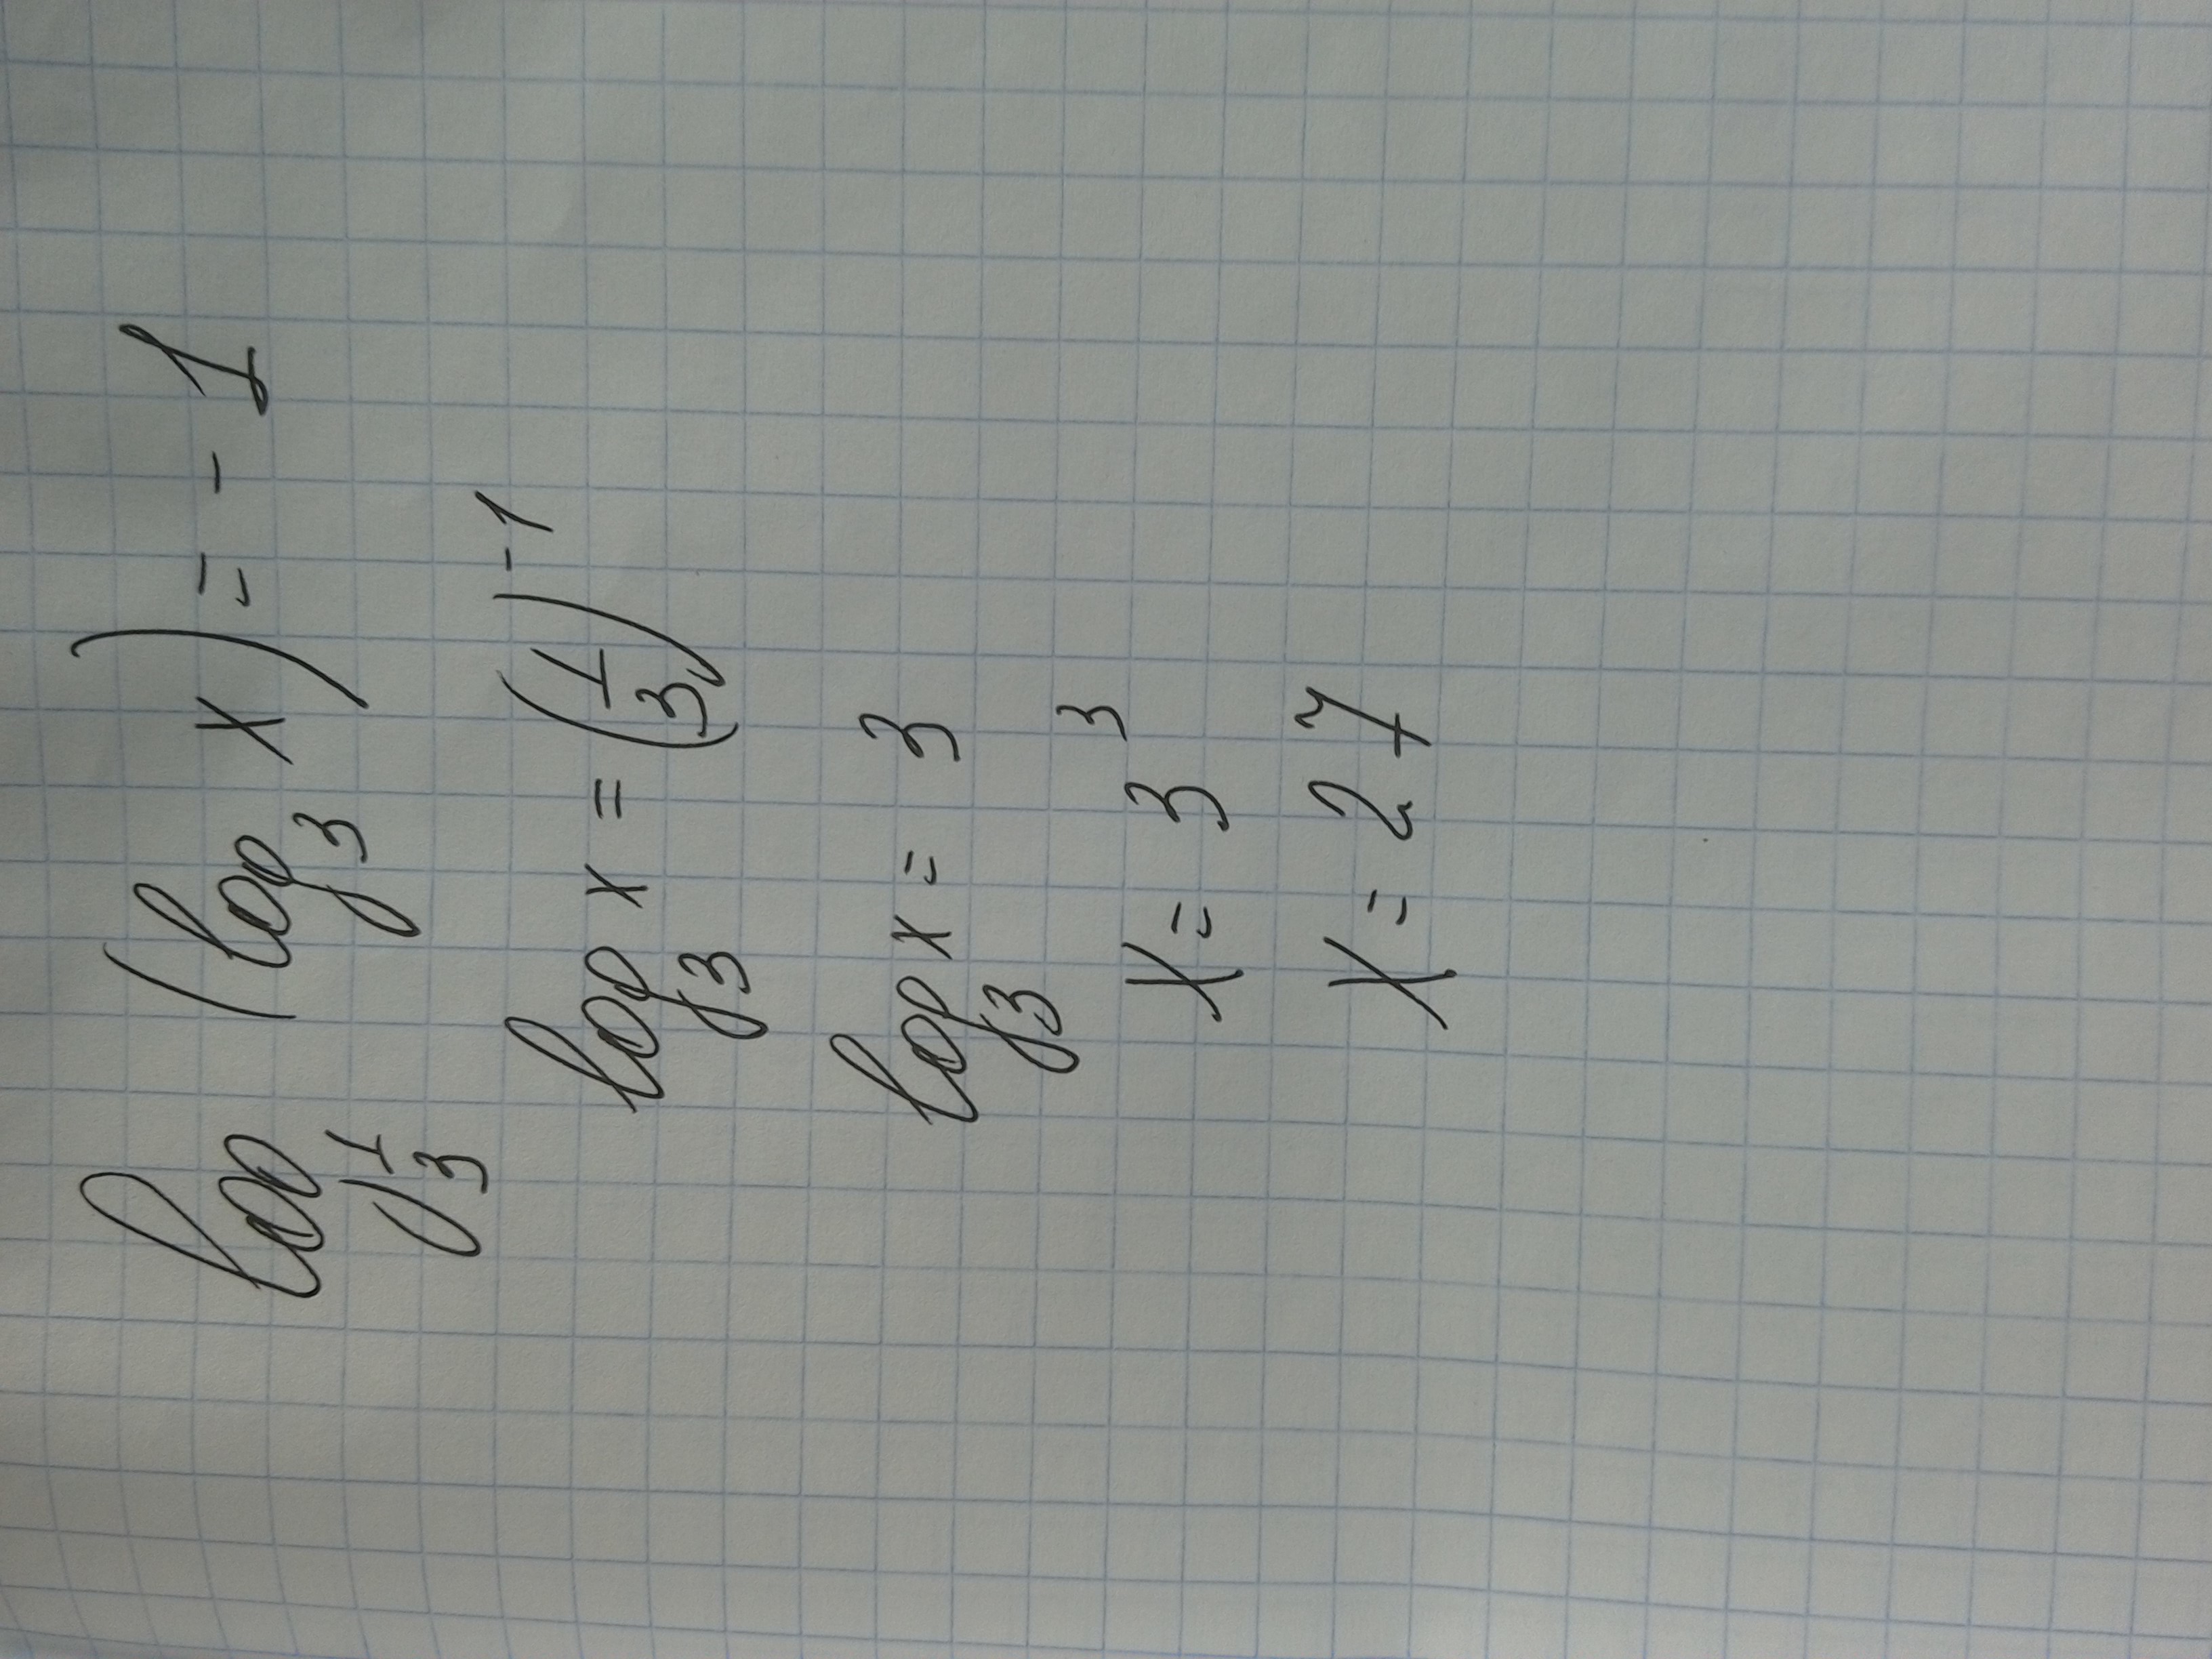 log_{1/3} (log_3 x) = -1
log_3 x = (1/3)^{-1}
log_3 x = 3
x = 3^3
x = 27